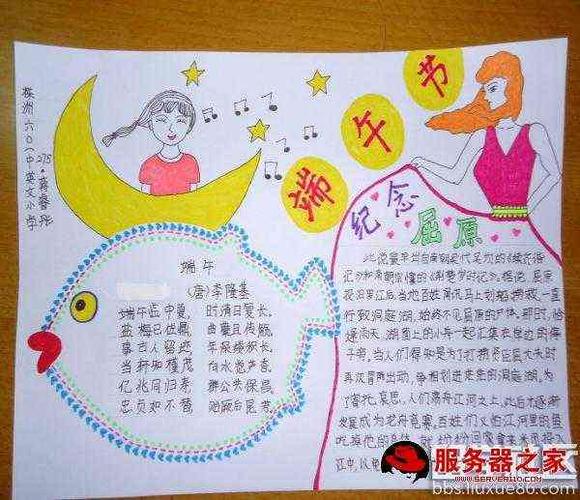 端午节
株洲六〇一中英文小学
端午
(唐)李隆基
端午临中夏，时清日复长。
盐梅已佐鼎，曲糵且传觞。
事古人留迹，年深缕积长。
当轩知槿茂，向水觉芦香。
亿兆同归寿，群公共保昌。
忠贞如不替，贻厥后昆芳。
纪念
屈原
此说最早出自南朝
记》和南朝宗懔的《荆楚岁时记》。据说，屈原
投汨罗江后，当地百姓闻讯马上划船捞救，一直
行致洞庭湖，始终不见屈原的尸体。那时，恰
逢雨天，湖面上的小舟一起汇集在岸边的亭
子旁。当人们得知是为了打捞贤臣屈大夫时
再次冒雨出动，争相划进茫茫的洞庭湖。为
了寄托哀思，人们荡舟江河之上，此后才逐渐
发展成为龙舟竞赛。百姓们又怕江河里的鱼
吃掉他的身体，就纷纷回家拿来米团投入
江中，以
服务器之家
http://www.server110.com
bbs.liuxue86.com